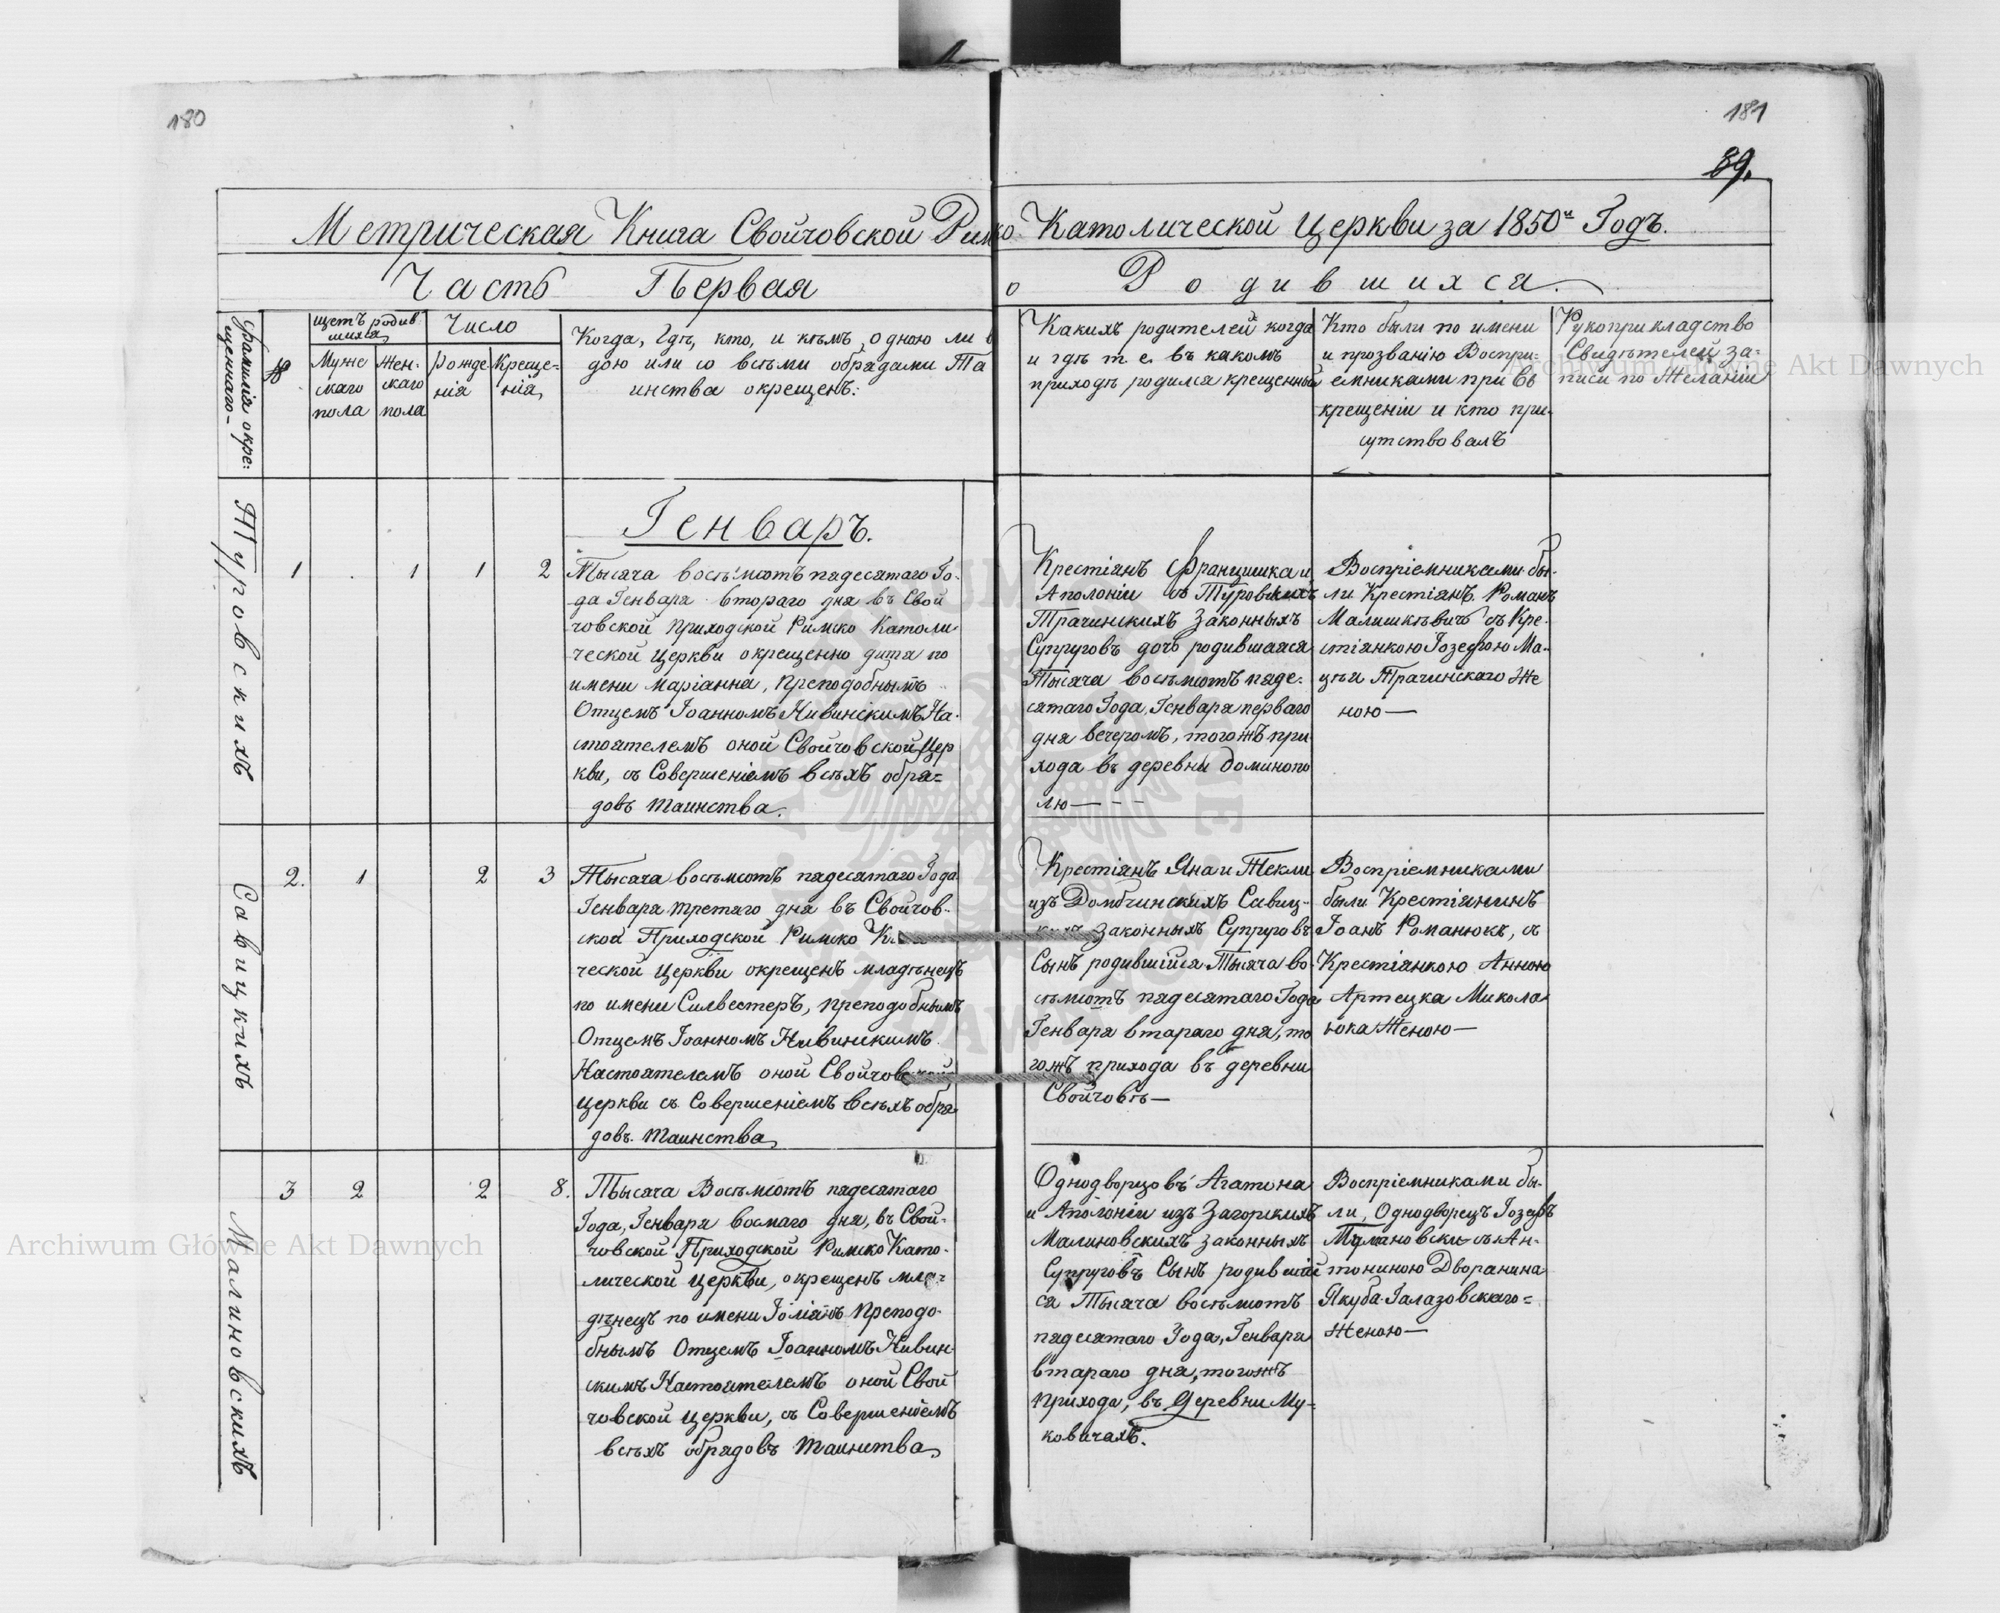 180
181
89.
Метрическая Книга Свойчовской Римско Католической Церкви за 1850й Годъ.
Часть Первая о Родившихся.
Фамилія окре:
щеннаго-
№
щетъ родив
шихся
Муже
скаго
пола
Жен-
скаго
пола
Число
рожде
нія
Креще=
нія,
Когда, Гдѣ, кто, и кѣмъ, одною ли в
дою или со всѣми обрядами Та
инства окрещенъ:
Какихъ родителей когда
и гдѣ т е. въ какомъ
приходѣ родился крещенный
Кто были по имени
и прозванію Воспри=
емниками при Св
крещеніи и кто при-
сутствовалъ
Рукоприкладство
Свидѣтелей за=
писи по Желаніи
Генварь.
Туровскихъ
1 . 1 1 2
Тысяча восѣмсотъ пядесятаго Го-
да Генваря втораго дня въ Свой
човской приходской Римско Католи
ческой Церкви окрещенно дитя по
имени Маріанна, Преподобнымъ
Отцемъ Іоанномъ Нивинскимъ На-
стоятелемъ оной Свойчовской Цер
кви, съ Совершеніемъ всѣхъ обря=
довъ таинства.
Крестіянъ Францишка и
Аполоніи съ Туровскихъ
Трачинскихъ Законныхъ
Супруговъ дочь родившаяся
Тысяча восѣмсотъ пяде-
сятаго Года, Генваря перваго
дня вечеромъ, тогожъ при
хода въ деревни Доминопо
лю — - -
Воспріемниками бы-
ли Крестіянъ Романъ
Малишкѣвичъ съ Кре-
стіянкою Іозефою Ма-
цѣя Трачинскаго Же
ною —
Савицкихъ
2. 1 2 3
Тысяча восѣмсотъ пядесятаго Года
Генваря третяго дня въ Свойчов-
ской Приходской Римско
ческой Церкви окрещенъ младѣнецъ
по имени Силвестеръ, преподобнымъ
Отцемъ Іоанномъ Нивинскимъ
Настоятелемъ оной Свойчовской
Церкви съ Совершеніемъ всѣхъ обря
довъ. таинства,
Крестіянъ Яна и Текли
изъ Домбчинскихъ Савиц-
кихъ Законныхъ Супруговъ
Сынъ родившійся Тысяча во-
сѣмсотъ пядесятаго Года
Генваря втараго дня, то
гожъ прихода въ деревни
Свойчовѣ —
Воспріемниками
были Крестіянинъ
Іоанъ Романюкъ, съ
Крестіянкою Анною
Артецка Микола
юка Женою —
Малиновскихъ
3 2 2 8.
Тысяча Восѣмсотъ пядесятаго
Года, Генваря восмаго дня, въ Свой-
човской Приходской Римско Като-
лической Церкви, окрещенъ мла-
дѣнецъ по имени Іоліянъ Преподо-
бнымъ Отцемъ Іоанномъ Нивин
скимъ Настоятелемъ оной Свой
човской Церкви, съ Совершеніемъ
всѣхъ обрядовъ таинства,
Однодворцовъ Агатона
и Аполоніи изъ Загорскихъ
Малиновскихъ Законныхъ
Супруговъ Сынъ родившій
ся Тысяча восѣмсотъ
пядесятаго Года, Генваря
втараго дня, тогожъ
прихода, въ Деревни Му-
ковичахъ.
Воспріемниками бы-
ли, Однодворецъ Іозефъ
Тулановски съ Ан-
тониною Дворанина
Якуба Галазовскаго=
Женою —
Archiwum Główne Akt Dawnych
Archiwum Główne Akt Dawnych